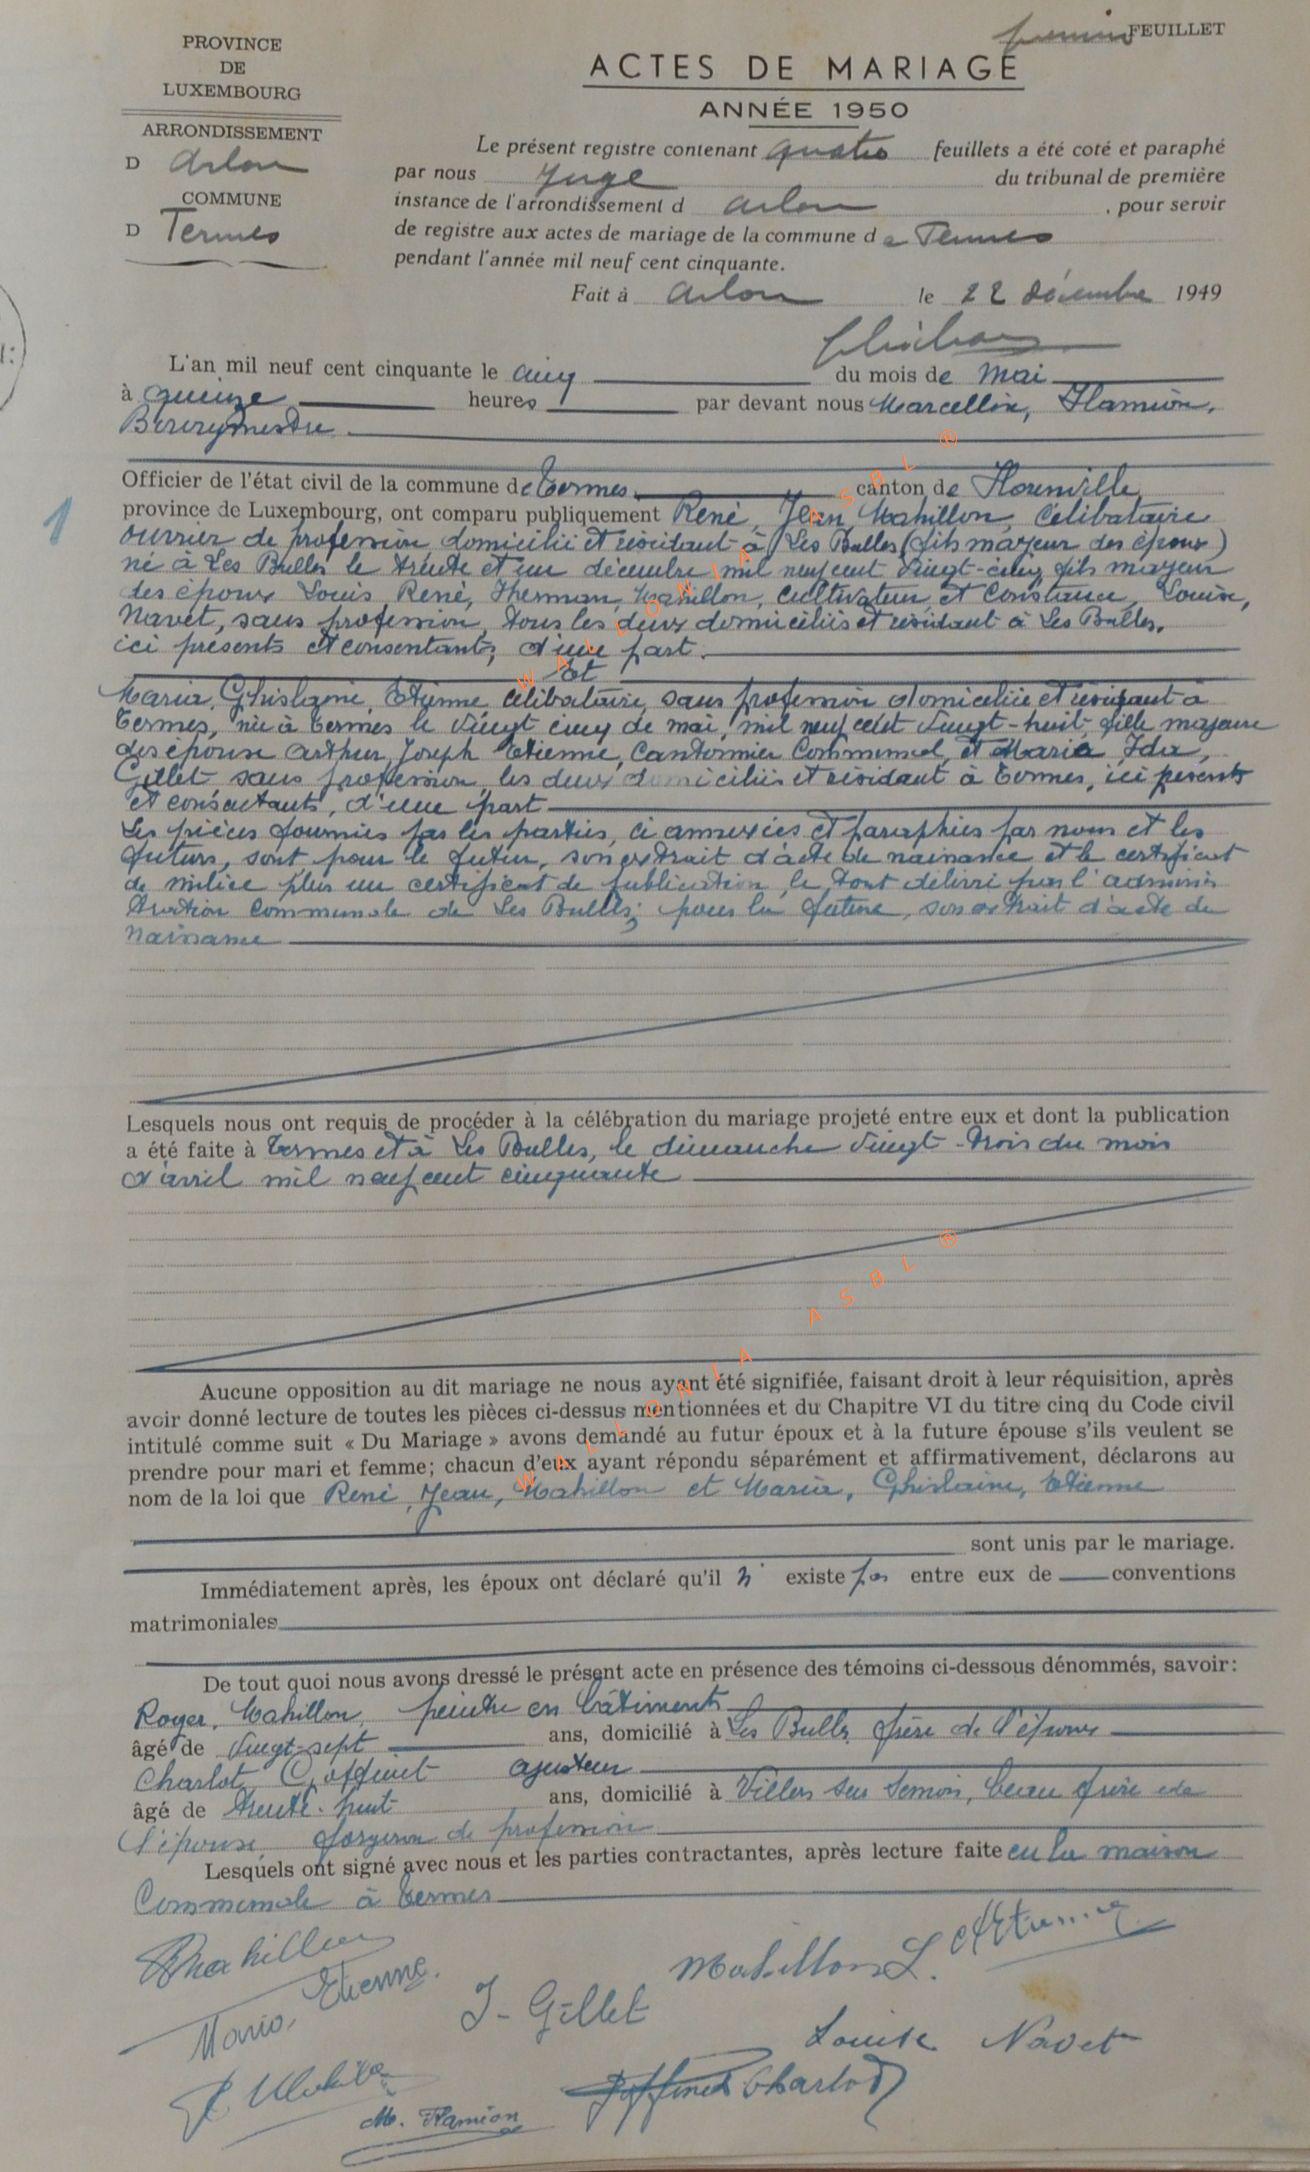 premier FEUILLET
PROVINCE
DE
LUXEMBOURG
ACTES DE MARIAGE
ANNÉE 1950
ARRONDISSEMENT
D Arlon
COMMUNE
D Termes
Le présent registre contenant quatre feuillets a été coté et paraphé
par nous Juge du tribunal de première
instance de l'arrondissement d Arlon, pour servir
de registre aux actes de mariage de la commune de Termes
pendant l'année mil neuf cent cinquante.
Fait à Arlon le 22 décembre 1949
L'an mil neuf cent cinquante le cinq du mois de Mai
à quinze heures par devant nous Marcellin, Hamion,
Bourgmestre
Officier de l'état civil de la commune de Termes canton de Florenville
1
province de Luxembourg, ont comparu publiquement René, Jean Mahillon, célibataire
ouvrier de profession domicilié et résidant à Les Bulles (fils majeur des époux)
né à Les Bulles le trente et un décembre mil neuf cent vingt-cinq fils majeur
des époux Louis René, Mahillon, cultivateur et Constance, Louise,
Navet, sans profession, tous les deux domiciliés et résidant à Les Bulles,
ici présents et consentants, d'une part.
Et
Maria, Ghislaine, Etienne célibataire, sans profession domiciliée et résidant à
Termes, née à Termes le vingt cinq de mai, mil neuf cent vingt-huit, fille majeure
des époux Arthur, Joseph Etienne, Cantonnier Communal, et Maria, Ida,
Gillet sans profession, les deux domiciliés et résidant à Termes, ici présents
et consentants, d'une part
Les pièces fournies par les parties, ci annexées et paraphées par nous et les
futurs, sont pour le futur, son extrait d'acte de naissance et le certificat
de milice plus un certificat de publication le tout délivré par l'adminis
tration communale de Les Bulles; pour la future, son extrait d'acte de
naissance
Lesquels nous ont requis de procéder à la célébration du mariage projeté entre eux et dont la publication
a été faite à Termes et à Les Bulles, le dimanche vingt-trois du mois
d'avril mil neuf cent cinquante
Aucune opposition au dit mariage ne nous ayant été signifiée, faisant droit à leur réquisition, après
avoir donné lecture de toutes les pièces ci-dessus mentionnées et du Chapitre VI du titre cinq du Code civil
intitulé comme suit « Du Mariage » avons demandé au futur époux et à la future épouse s'ils veulent se
prendre pour mari et femme; chacun d'eux ayant répondu séparément et affirmativement, déclarons au
nom de la loi que René, Jean, Mahillon et Maria, Ghislaine, Etienne
sont unis par le mariage.
Immédiatement après, les époux ont déclaré qu'il n' existe pas entre eux de conventions
matrimoniales
De tout quoi nous avons dressé le présent acte en présence des témoins ci-dessous dénommés, savoir:
Roger, Mahillon, peintre en bâtiments
âgé de vingt-sept ans, domicilié à Les Bulles frère de l'époux
Charlot, Goffinet ajusteur
âgé de trente-huit ans, domicilié à Villers sur Semois, beau frère de
l'épouse, forgeron de profession
Lesquels ont signé avec nous et les parties contractantes, après lecture faite en la maison
Communale à Termes
RMahillon
Mahillon L.
AEtienne
Maria, Etienne.
I-Gillet
Louise Navet
R Mahillon
Goffinet Charlot
M. Hamion
WALLONIA ASBL ®
WALLONIA ASBL ®